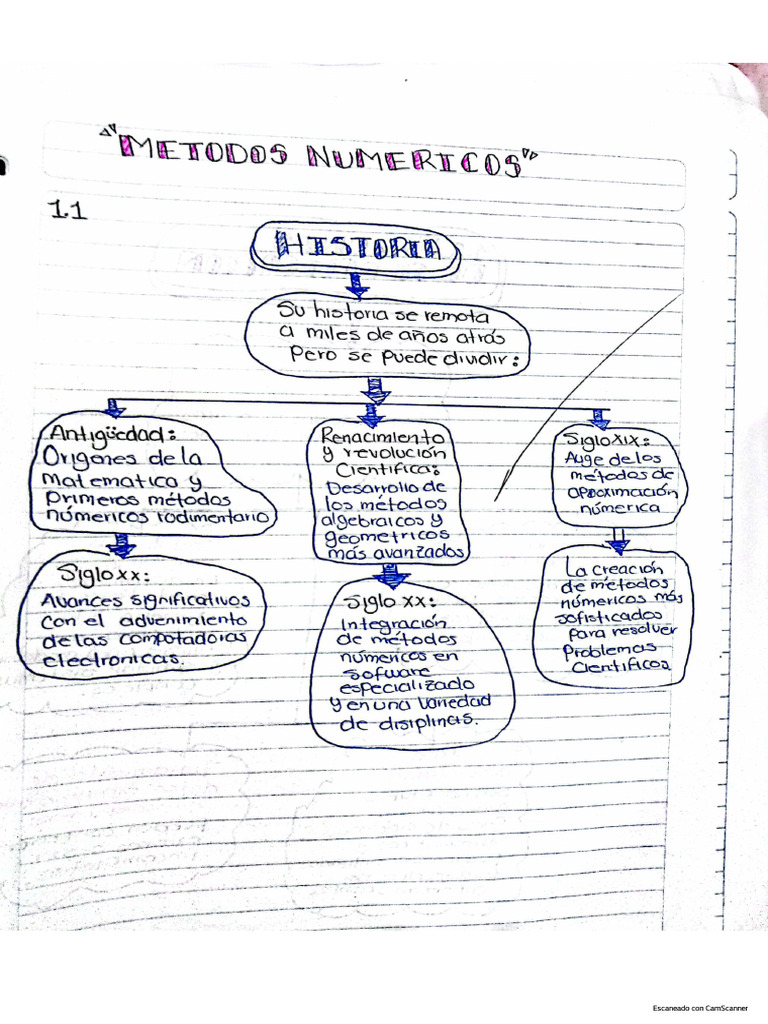 "METODOS NUMERICOS"
1.1
HISTORIA
Su historia se remota
a miles de años atrás
Pero se puede dividir:
Antigüedad:
Origenes de la
Matematica y
Primeros métodos
númericos rodimentario
Renacimiento
y revolución
Cientifica:
Desarrollo de
los métodos
algebraicos y
geometricos
más avanzados
Siglo XIX:
Auge de los
métodos de
aproximación
númerica
Siglo xx:
Avances significativos
con el advenimiento
de las computadoras
electronicas.
Siglo xx:
Integración
de métodos
númericos en
sofware
especializado
y en una variedad
de disiplinas.
La creación
de métodos
númericos más
sofisticados
para resolver
Problemas
Cientificos
Escaneado con CamScanner